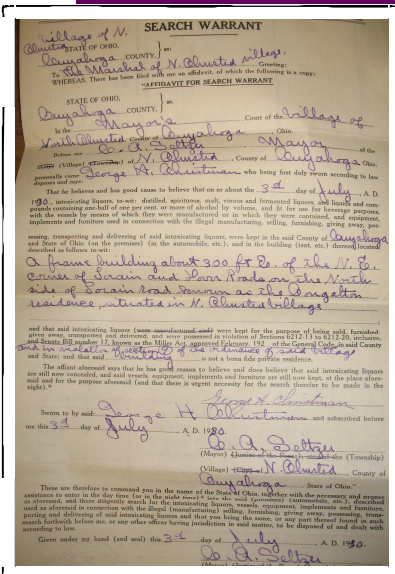 Village of N.
Olmsted
SEARCH WARRANT
STATE OF OHIO,
Cuyahoga COUNTY, } ss:
To The Marshal of N. Olmsted Village, Greeting:
WHEREAS, There has been filed with me an affidavit, of which the following is a copy:
"AFFIDAVIT FOR SEARCH WARRANT
STATE OF OHIO,
Cuyahoga COUNTY, } ss:
In the Mayor's Court of the Village of
North Olmsted County of Cuyahoga Ohio.
Before me C. A. Seltzer Mayor of the
(City) (Village) (Township) of N. Olmsted, County of Cuyahoga Ohio,
personally came George H. Christman who being first duly sworn according to law
deposes and says:
That he believes and has good cause to believe that on or about the 3d day of July, A. D.
1930, intoxicating liquors, to-wit: distilled, spirituous, malt, vinous and fermented liquors, and liquids and com-
pounds containing one-half of one per cent. or more of alcohol by volume, and fit for use for beverage purposes,
with the vessels by means of which they were manufactured or in which they were contained, and equipment,
implements and furniture used in connection with the illegal manufacturing, selling, furnishing, giving away, pos-
sessing, transporting and delivering of said intoxicating liquors, were kept in the said County of Cuyahoga
and State of Ohio (on the premises) (in the automobile, etc.), and in the building (tent, etc.) thereof located
described as follows, to-wit:
A frame building about 300 ft E. of the N. E.
corner of Lorain and Roads, on the North
side of Lorain Road known as the
residence, situated in N. Olmsted Village
and that said intoxicating liquors (were manufactured and) were kept for the purpose of being sold, furnished,
given away, transported and delivered, and were possessed in violation of Sections 6212-13 to 6212-20, inclusive,
and Senate Bill number 17, known as the Miller Act, approved February, 192 of the General Code, in said County
and in violation of section of the ordinances of said Village
and State; and that said building is not a bona fide private residence.
The affiant aforesaid says that he has good reason to believe and does believe that said intoxicating liquors
are still concealed, and said vessels, equipment, implements and furniture are still now kept, at the place afore-
said and for the purpose aforesaid (and that there is urgent necessity for the search therefor to be made in the
night).*
George H. Christman
Sworn to by said George H Christman and subscribed before
me this 3d day of July A. D. 1930.
C. A. Seltzer
(Mayor) (Justice of the Peace), of the (Township)
(Village) (City) of N. Olmsted County of
Cuyahoga State of Ohio."
These are therefore to command you in the name of the State of Ohio, together with the necessary and proper
assistance to enter in the day time (or in the night time)* into the said (premises) (automobile, etc.), described
as aforesaid, and there diligently search for the intoxicating liquors, vessels, equipment, implements and furniture,
used as aforesaid in connection with the illegal (manufacturing) selling, furnishing, giving away, possessing, trans-
porting and delivering of said intoxicating liquors and that you bring the same, or any part thereof found in such
search forthwith before me, or any other officer having jurisdiction in said matter, to be disposed of and dealt with
according to law.
Given under my hand (and seal) this 3d day of July A. D. 1930.
C. A. Seltzer